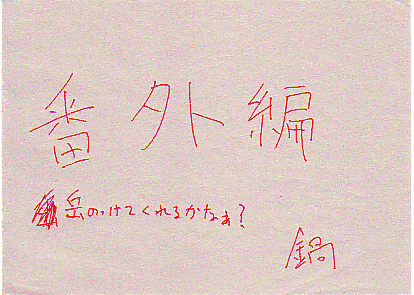 番外編
岳のっけてくれるかなぁ?
鍋